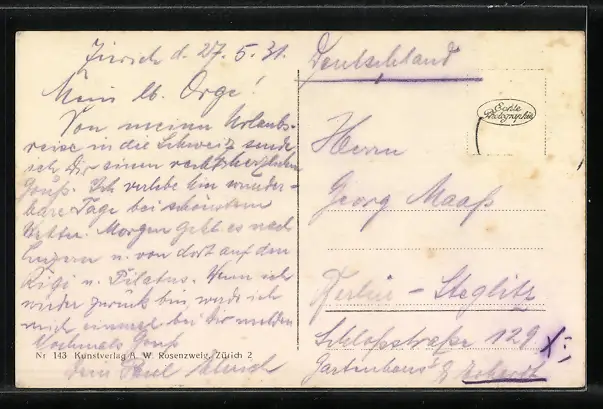 Zürich d. 27. 5. 31.
Mein lb. Orge!
Von meiner Urlaubs-
reise in die Schweiz sende
ich Dir einen recht herzlichen
Gruß. Ich verlebe hier wunder-
bare Tage bei schönstem
Wetter. Morgen geht es nach
Luzern u. von dort auf den
Rigi u. Pilatus. Wenn ich
wieder zurück bin, werde ich
mich einmal bei Dir melden
Nochmals Gruß
Dein Paul
Nr 143 Kunstverlag A. W. Rosenzweig, Zürich 2
Deutschland
Echte
Photographie
Herrn
Georg Maaß
Berlin - Steglitz
Schloßstraße 129
Gartenhaus